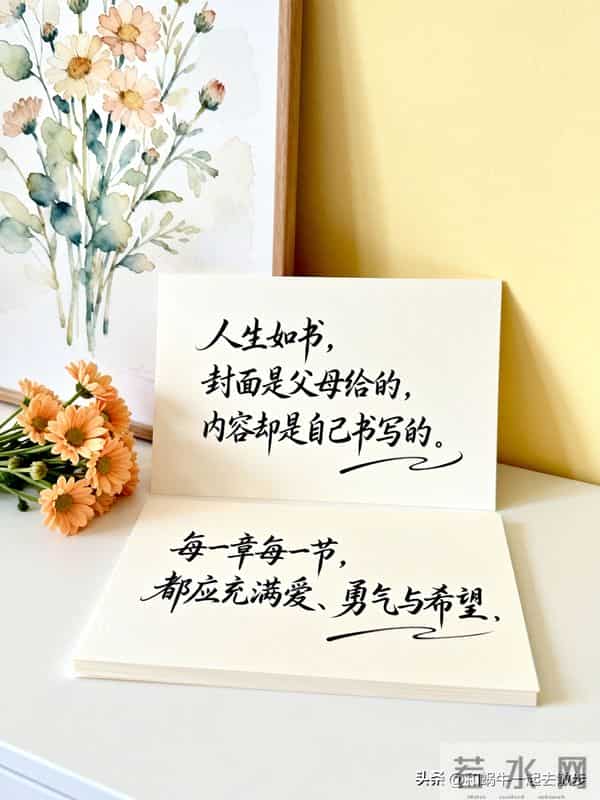 人生如书，
封面是父母给的，
内容却是自己书写的。
每一章每一节，
都应充满爱、勇气与希望、
若水网
头条 @和蜗牛一起去散步